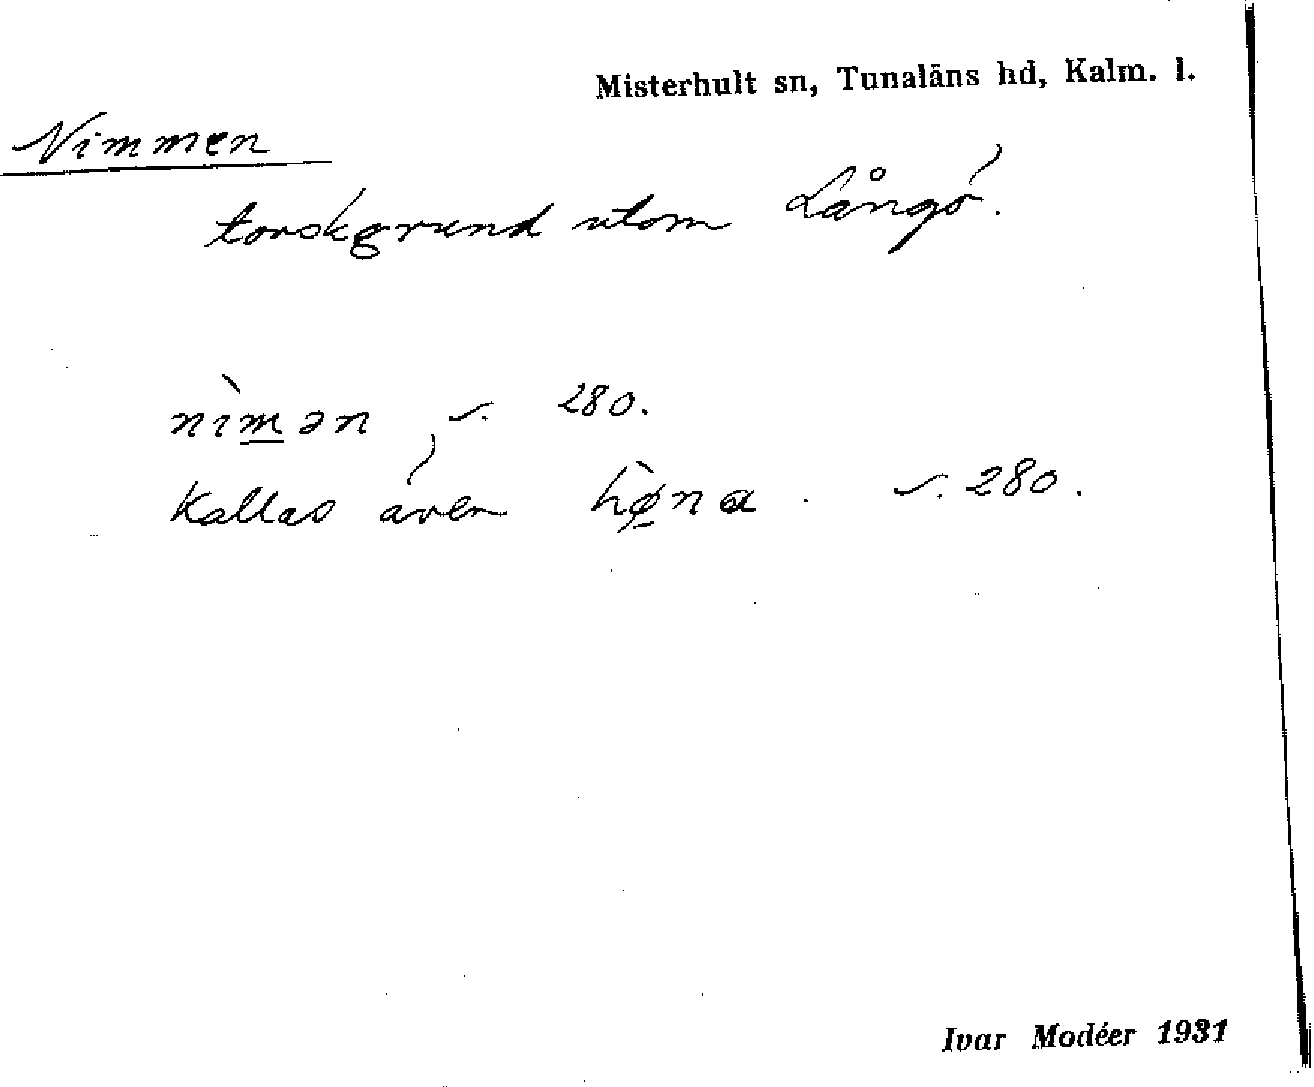 Misterhult sn, Tunaläns hd, Kalm. l.
Nimmen
torskgrund utom Långö.
nìmən s. 280.
kallas även hø̀na. s. 280.
Ivar Modéer 1931